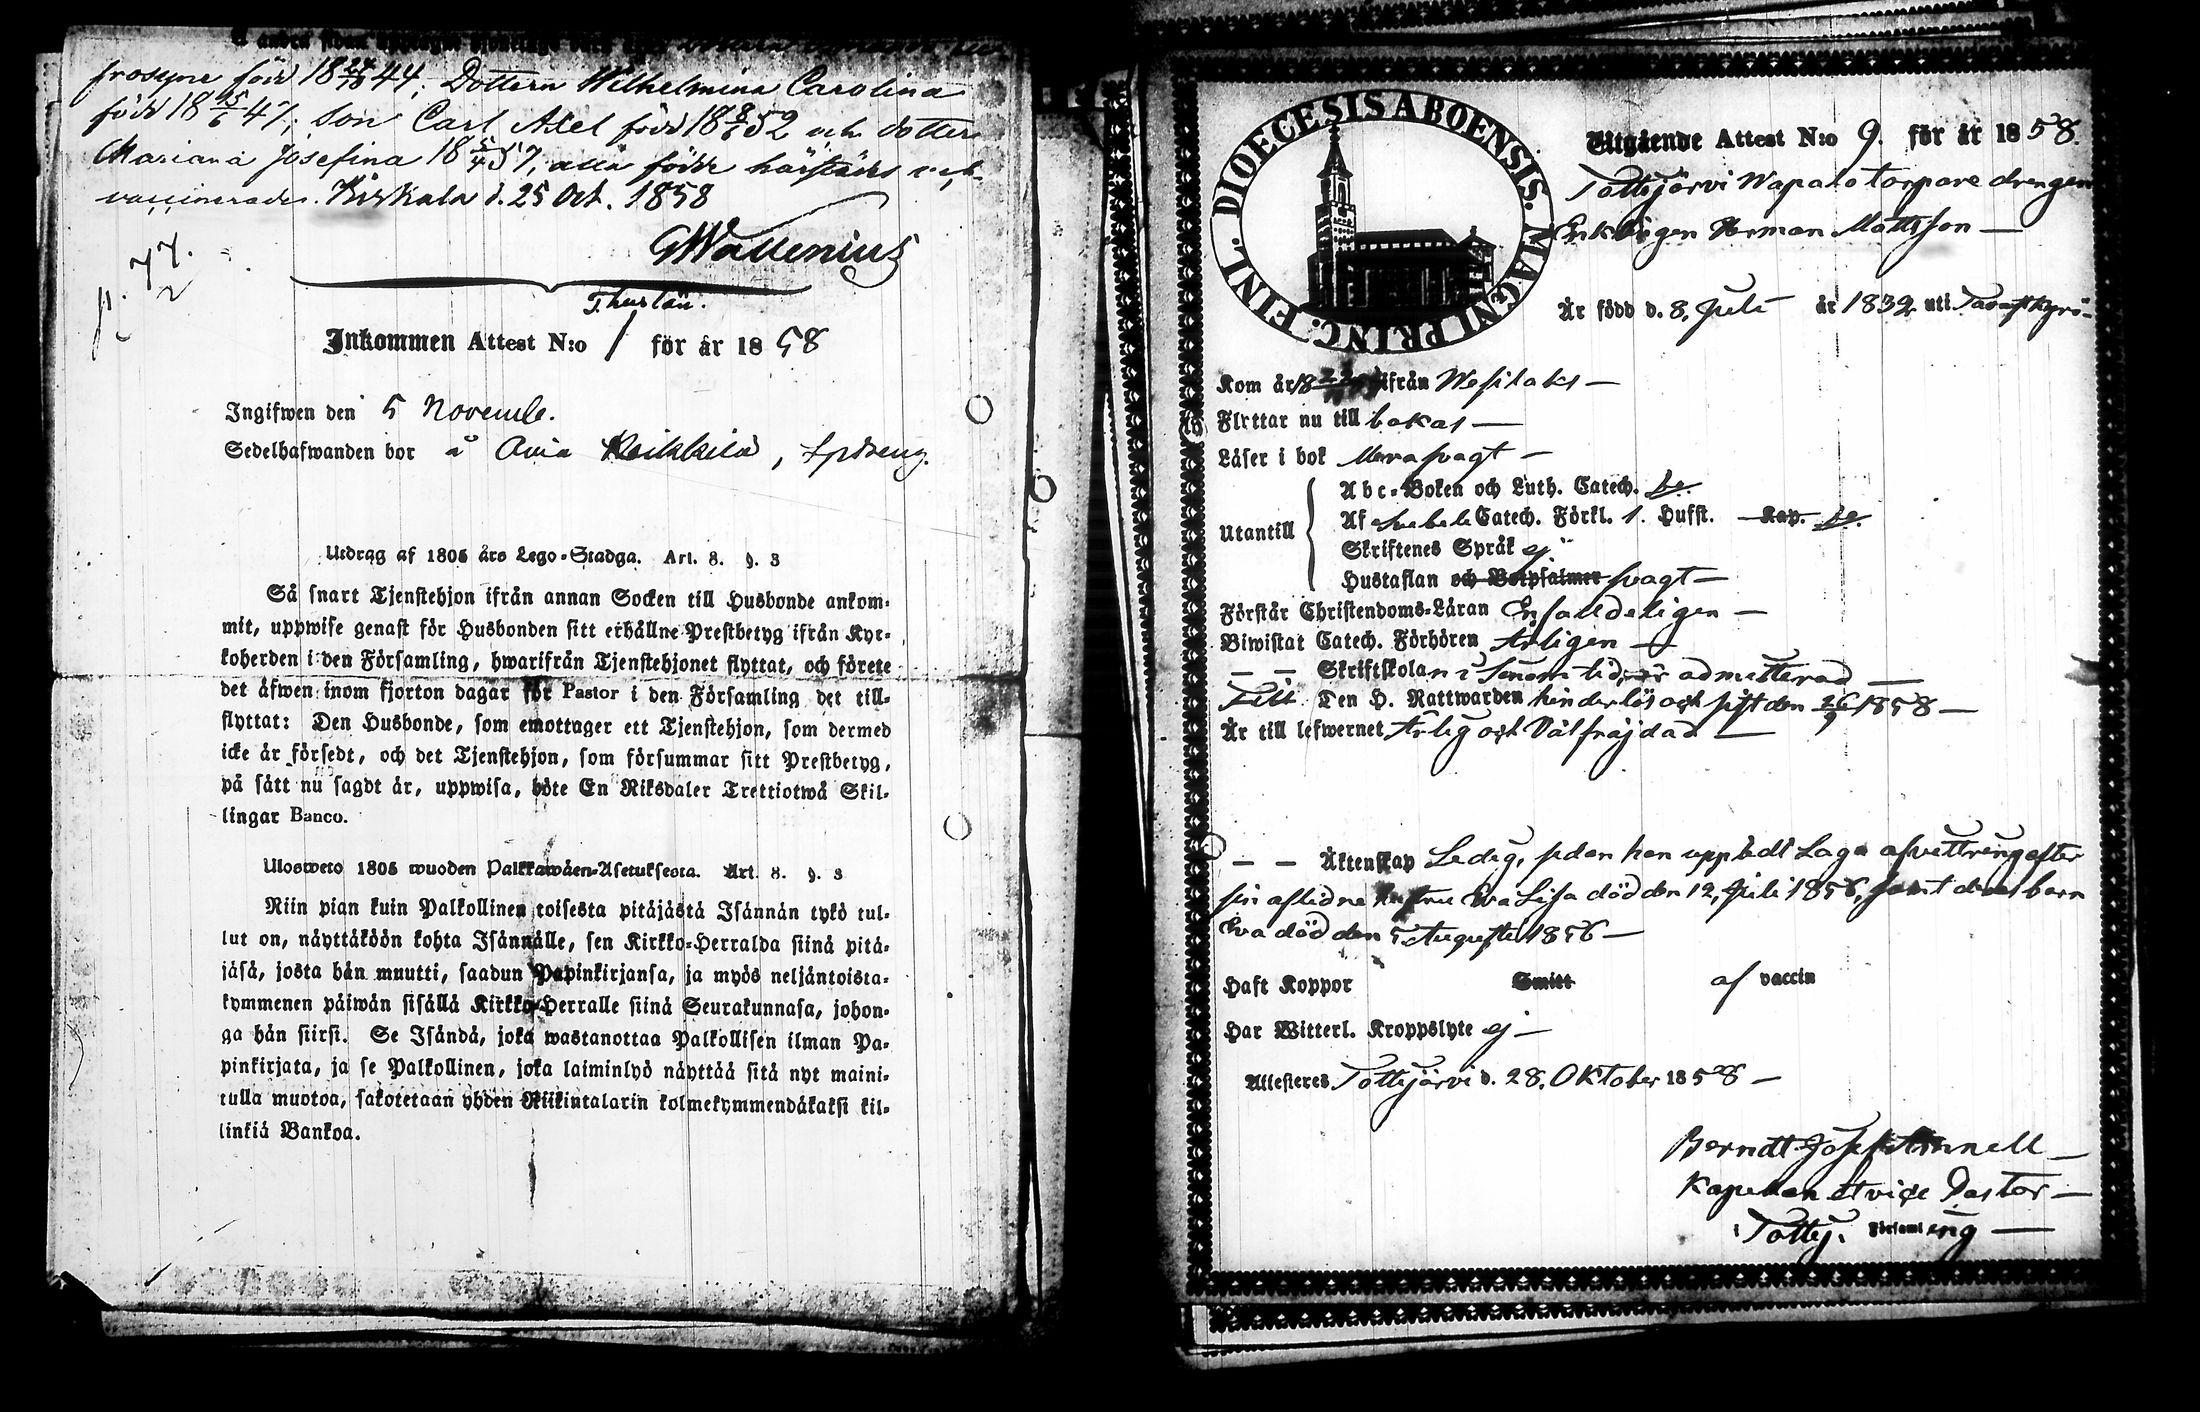 frosyne född 18 24/10 44; Dottern Wilhelmina Carolina
född 18 15/6 47; son Carl Axel född 18 8/1 52 och dotter
Mariana Josefina 18 5/4 57, alla födde härstädes och
vaccinerade. Kiskala d. 25 Oct. 1858
GWallenius
p. 77.
Inkommen Attest N:o 1 för år 1858
Ingifwen den 5 Novemb.
Sedelhafwanden bor å
Utdrag af 1805 års Lego-Stadga. Art. 8. §. 3
Så snart Tjenstehjon ifrån annan Socken till Husbonde ankom-
mit, uppwise genast för Husbonden sitt erhållne Prestbetyg ifrån Kyr-
koherden i den Församling, hwarifrån Tjenstehjonet flyttat, och förete
det äfwen inom fjorton dagar för Pastor i den Församling det till-
flyttat: Den Husbonde, som emottager ett Tjenstehjon, som dermed
icke är försedt, och det Tjenstehjon, som försummar sitt Prestbetyg,
på sätt nu sagdt är, uppwisa, böte En Riksdaler Trettiotwå Skil-
lingar Banco.
Ulosweto 1805 wuoden Palkkawäen-Asetuksesta. Art. 8. §. 3
Niin pian kuin Palkollinen toisesta pitäjästä Isännän tykö tul-
lut on, näyttäköön kohta Isännälle, sen Kirkko-Herralda siinä pitä-
jäsä, josta hän muutti, saadun Papinkirjansa, ja myös neljäntoista-
kymmenen päiwän sisällä Kirkko-Herralle siinä Seurakunnasa, johon-
ga hän siirsi. Se Isändä, joka wastanottaa Palkollisen ilman Pa-
pinkirjata, ja se Palkollinen, joka laiminlyö näyttää sitä nyt maini-
tulla muotoa, sakotetaan yhden Riikintalarin kolmekymmendäkaksi kil-
linkiä Bankoa.
DIOECESIS ABOENSIS. MAGNI PRINC. FINL.
Utgående Attest N:o 9. för år 1858.
Tottijärvi Wapalo torpare drengen
Enklingen Herman Mattsson
Är född d. 8. Juli år 1832 uti Tavastkyrö
Kom år 18 ifrån Wesilaks
Flyttar nu till bokas
Läser i bok Merasvagt
Utantill
Abc-Boken och Luth. Catech. be.
Af Svebeli Catech. Förkl. 1. Hufst. Kap. be.
Skriftenes Språk ej
Hustaflan och Botpsalmer svagt
Förstår Christendoms-Läran Enfaldeligen
Biwistat Catech. Förhören Årligen
— — Skriftskolan i sinom tid, är admitterad
Till Den H. Nattwarden hinderlös och sist den 26/9 1858
Är till lefwernet Ärlig och Välfräjdad
— — Äktenskap Ledig, sedan han uppledt Laga afvittring efter
sin aflidne hustru Eva Lisa död den 12, Juli 1856, samt deras barn
Eva död den 5 Augusti 1856
Haft Koppor Smitt af vaccin
Har Witterl. Kroppslyte ej
Attesteres Tottijärvi d. 28. Oktober 1858
Berndt Josef
Kapellan et vice Pastor
i Tottij. Församling